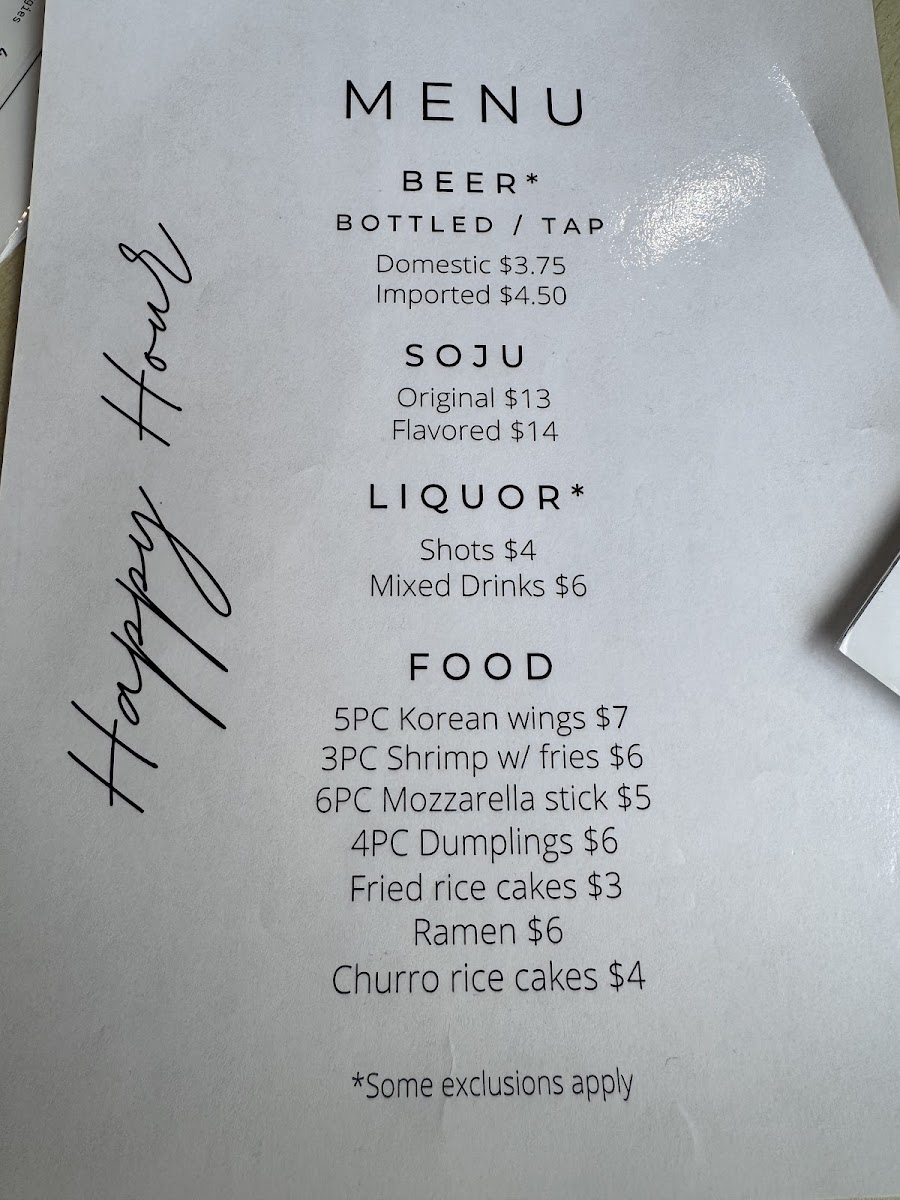 MENU
BEER*
BOTTLED / TAP
Domestic $3.75
Imported $4.50
SOJU
Original $13
Flavored $14
LIQUOR*
Shots $4
Mixed Drinks $6
FOOD
5PC Korean wings $7
3PC Shrimp w/ fries $6
6PC Mozzarella stick $5
4PC Dumplings $6
Fried rice cakes $3
Ramen $6
Churro rice cakes $4
*Some exclusions apply
Happy Hour